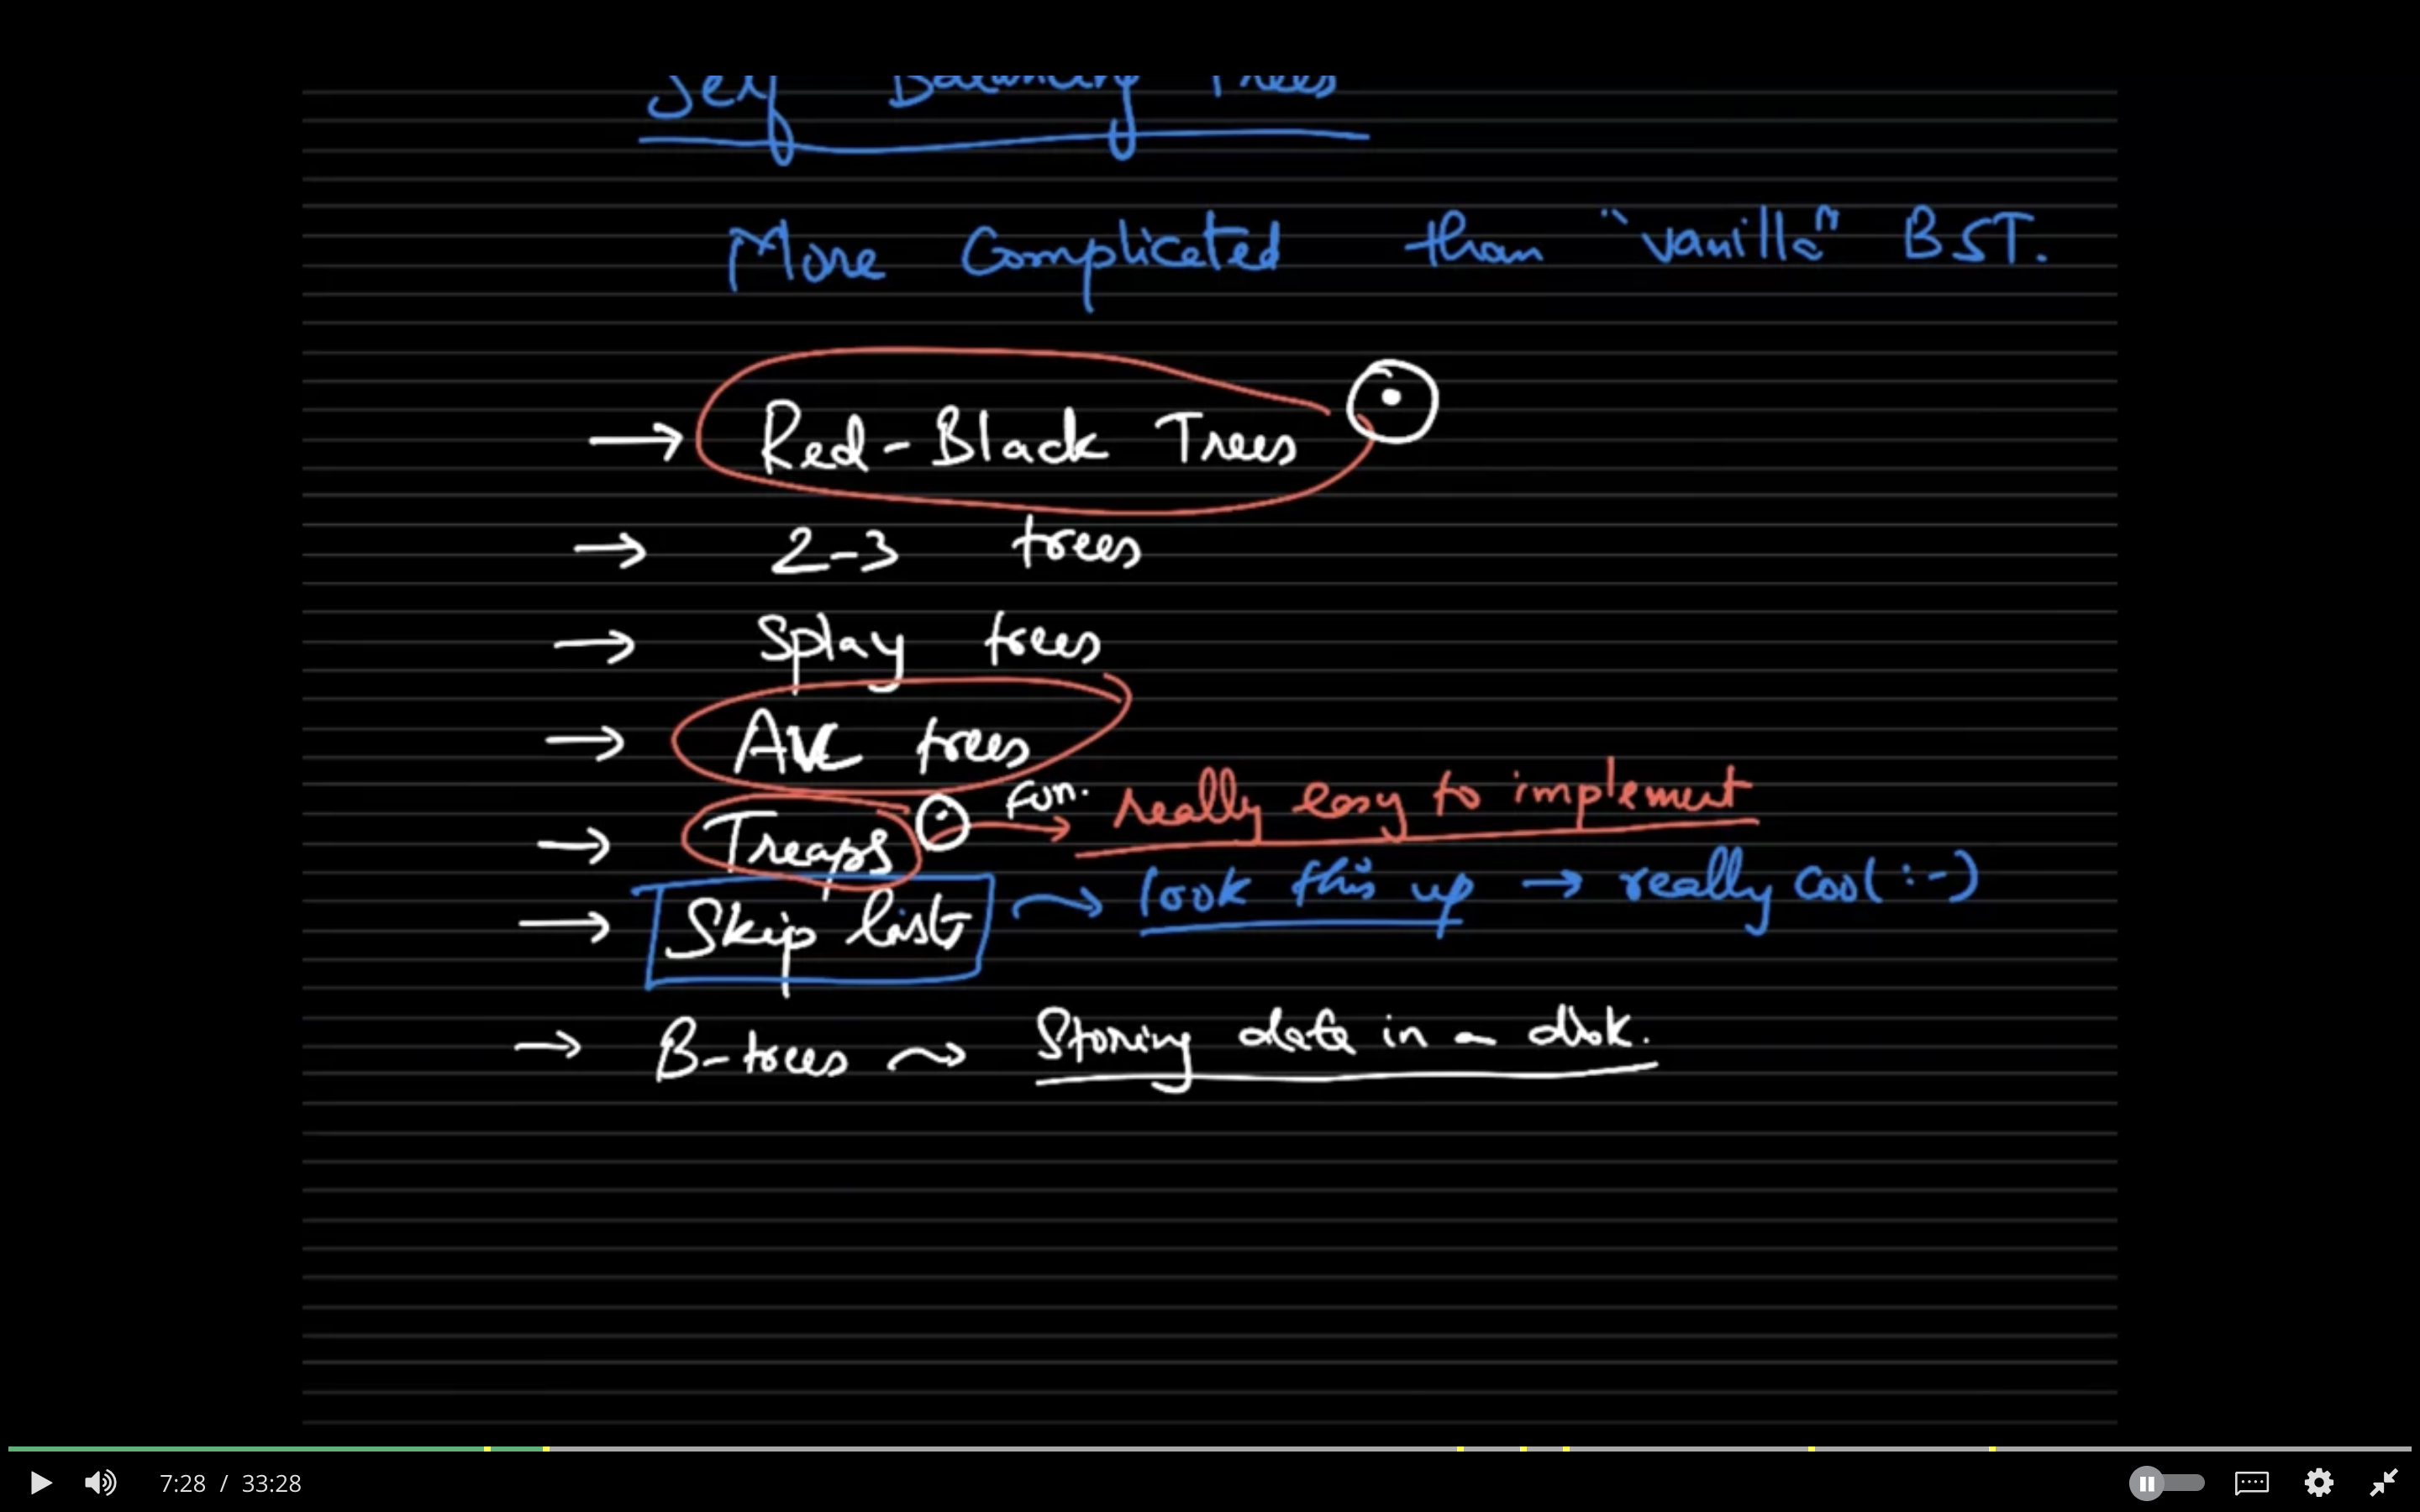 Self Balancing Trees
More Complicated than "vanilla" BST.
→ Red-Black Trees
→ 2-3 trees
→ Splay trees
→ AVL trees
→ Treaps Fun. → really easy to implement
→ Skip list → look this up → really cool :-)
→ B-trees → Storing data in a disk.
7:28 / 33:28